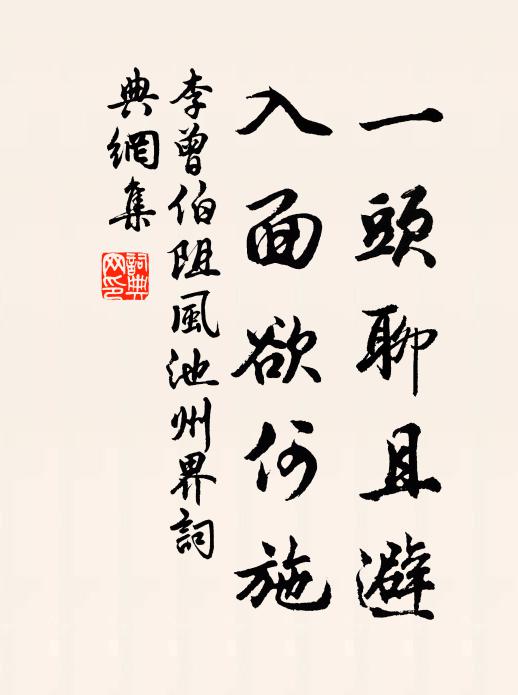 一頭聊且避
入面欲何施
李曾伯阻風池州界詞
典網集
詞典網印